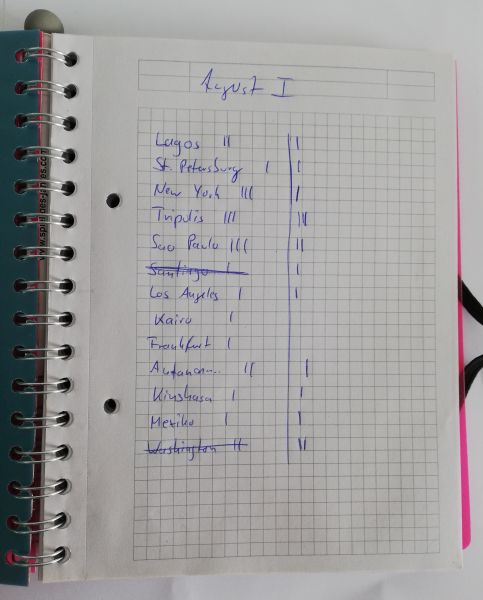 August I
Lagos II | I
St. Petersburg I | I
New York III | I
Tripolis III | III
Sao Paulo III | II
Santiago I | I
Los Angeles I | I
Kairo I
Frankfurt I
II | I
Kinshasa I | I
Mexiko I | I
Washington II | II